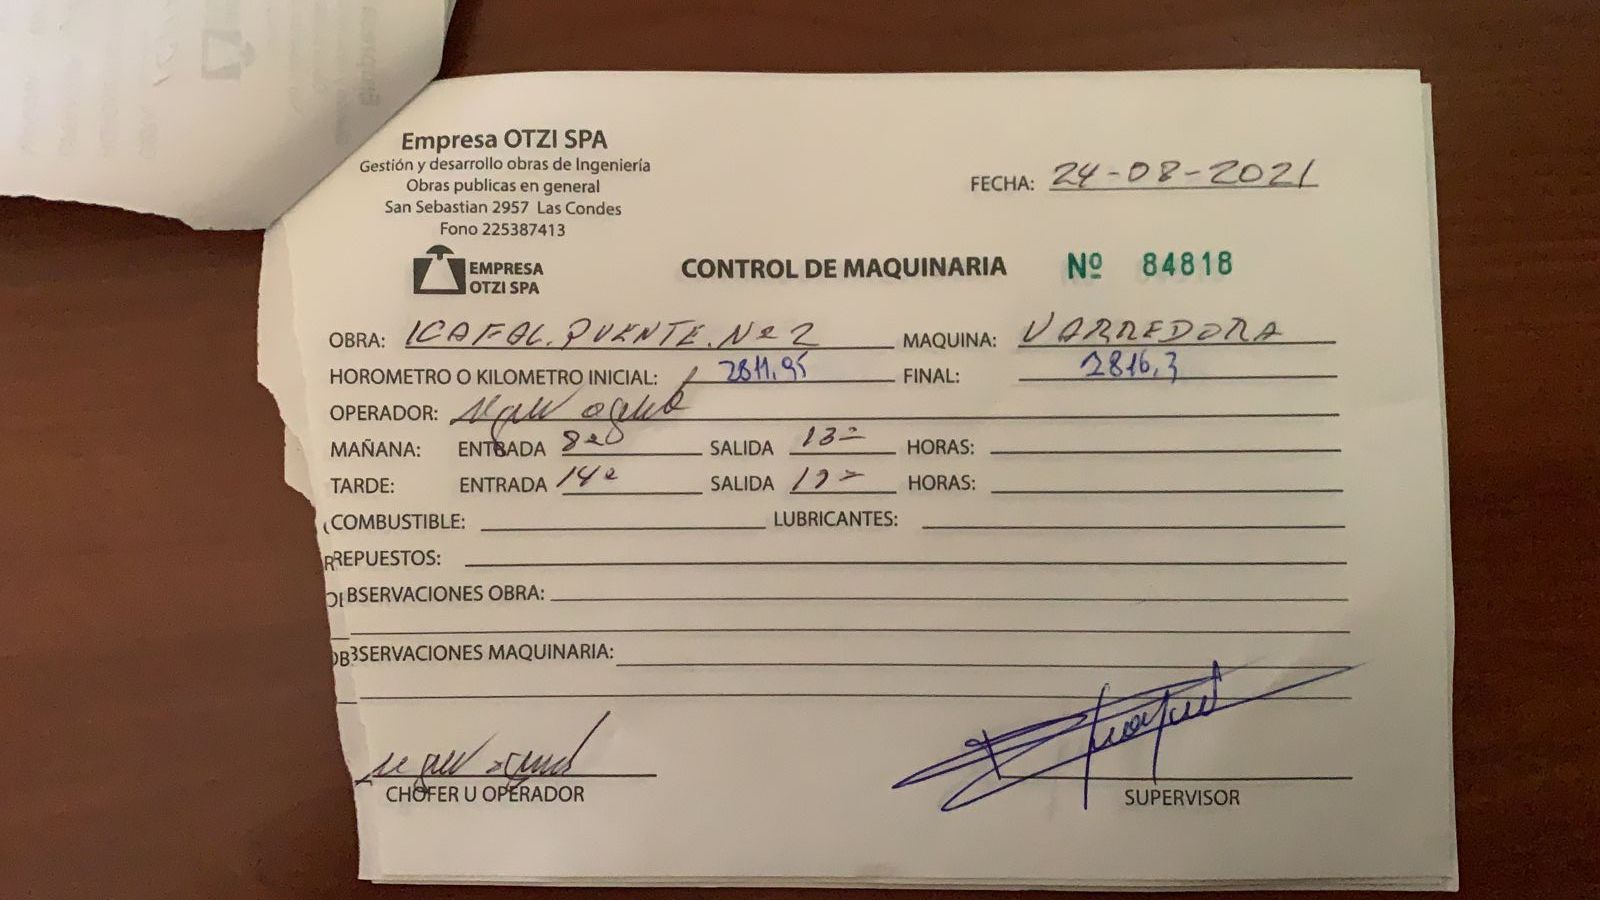 Empresa OTZI SPA
Gestión y desarrollo obras de Ingeniería
Obras publicas en general
San Sebastian 2957 Las Condes
Fono 225387413
EMPRESA
OTZI SPA
FECHA: 24-08-2021
CONTROL DE MAQUINARIA Nº 84818
OBRA: ICAFAL. PUENTE. Nº 2 MAQUINA: VARREDORA
HOROMETRO O KILOMETRO INICIAL: 2811,95 FINAL: 2816,3
OPERADOR:
MAÑANA: ENTRADA 8 SALIDA 13 HORAS:
TARDE: ENTRADA 14 SALIDA HORAS:
COMBUSTIBLE: LUBRICANTES:
REPUESTOS:
BSERVACIONES OBRA:
SERVACIONES MAQUINARIA:
CHOFER U OPERADOR SUPERVISOR